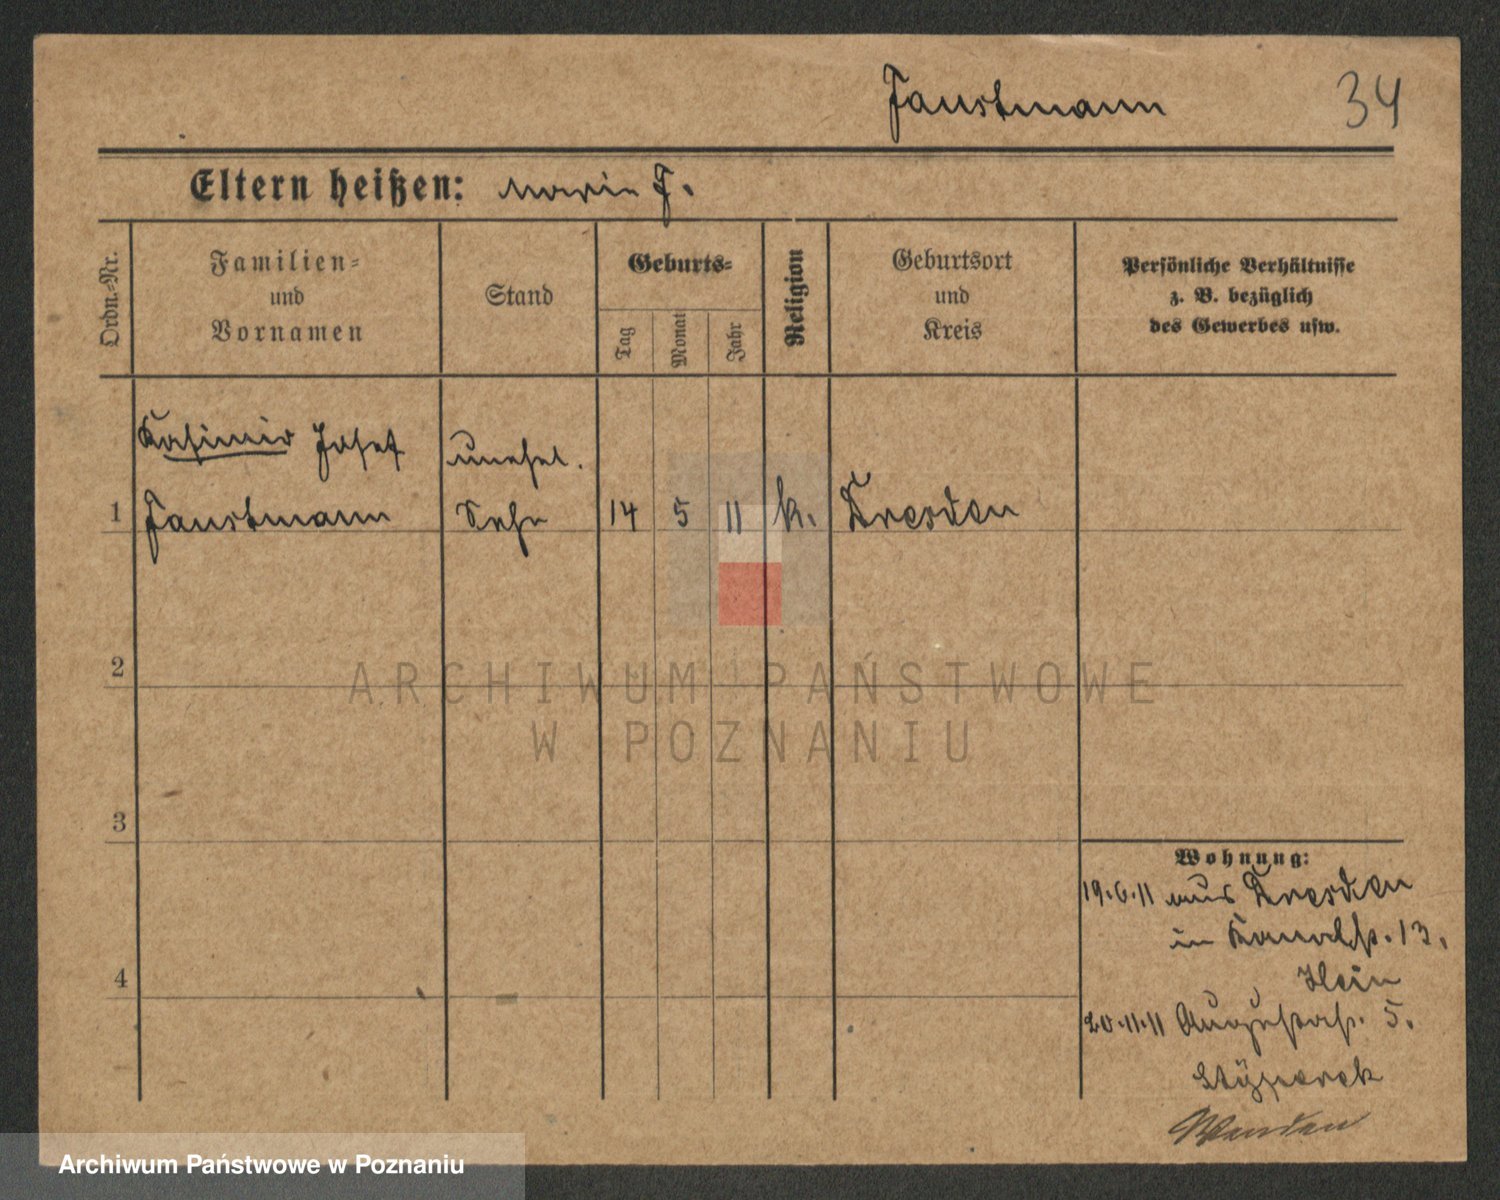 Faustmann 34
Eltern heißen: Marie F.
Ordn.-Nr.
Familien-
und
Vornamen
Stand
Geburts-
Tag
Monat
Jahr
Religion
Geburtsort
und
Kreis
Persönliche Verhältnisse
z. B. bezüglich
des Gewerbes usw.
Kasimir Josef unehel.
1 Faustmann Sohn 14 5 11 k. Dresden
2
ARCHIWUM PAŃSTWOWE
W POZNANIU
3
Wohnung:
19.6.11 aus Dresden
in Kanalstr. 13.
Hein
4
20.11.11 Augustastr. 5.
Archiwum Państwowe w Poznaniu